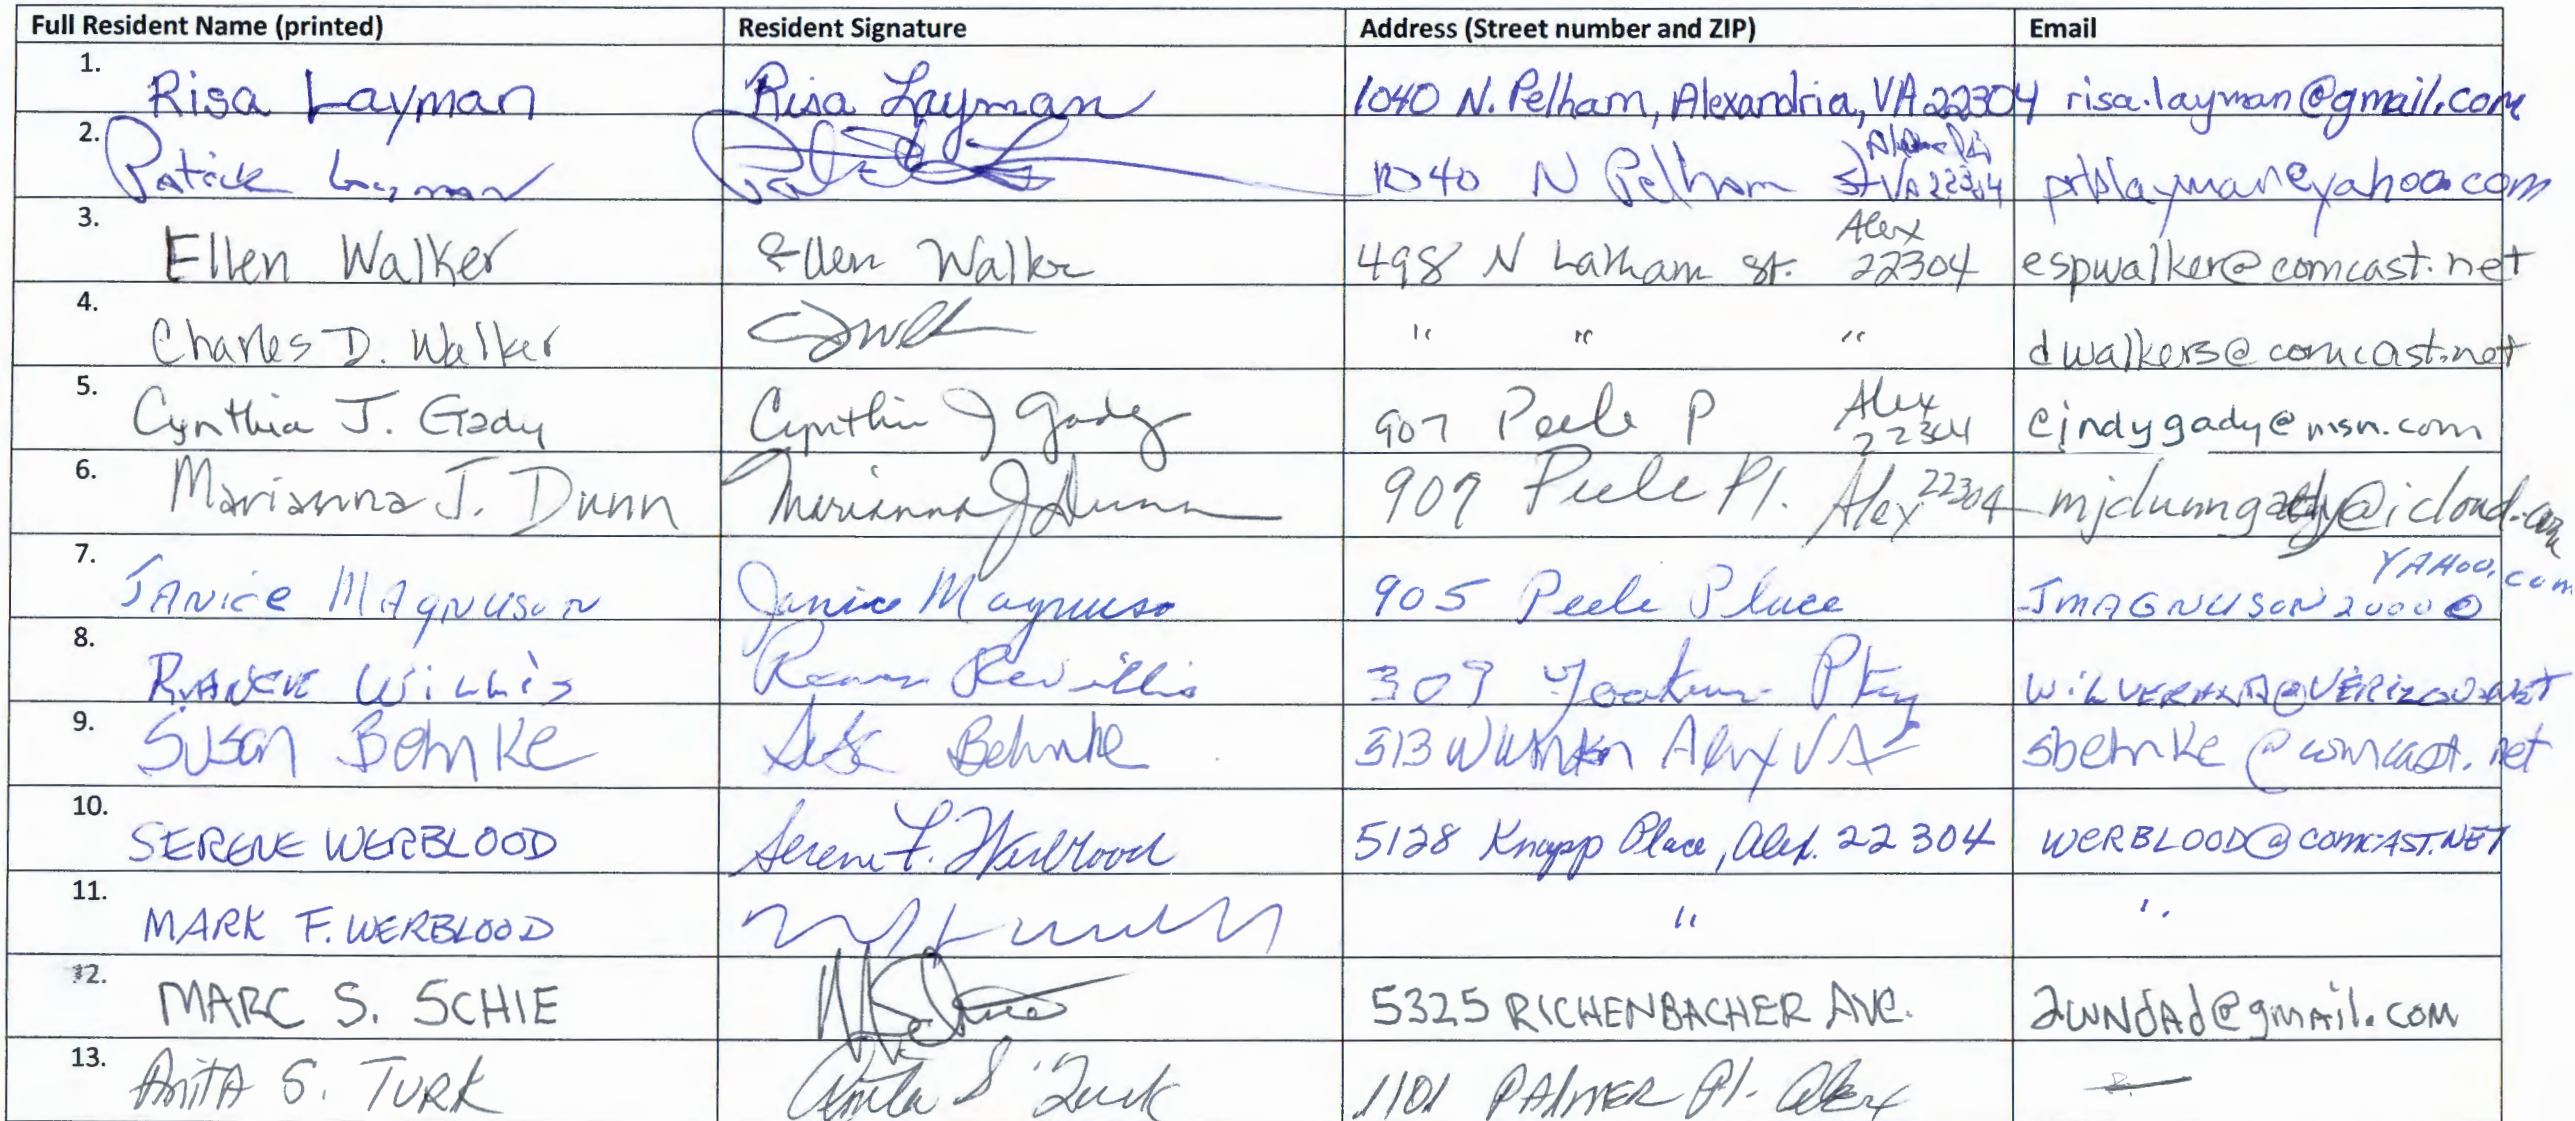 Full Resident Name (printed) Resident Signature Address (Street number and ZIP) Email
1. Risa Layman Risa Layman 1040 N. Pelham, Alexandria, VA 22304 risa.layman@gmail.com
2. Patrick Layman 1040 N Pelham St VA 22304 prtblayman@yahoo.com
3. Ellen Walker Ellen Walker 498 N Latham St. Alex 22304 espwalker@comcast.net
4. Charles D. Walker " " " dwalkers@comcast.net
5. Cynthia J. Gady Cynthia J Gady 907 Peele P Alex 22304 cindygady@msn.com
6. Marianna J. Dunn Marianna J Dunn 909 Peele Pl. Alex 22304
7. Janice Magnuson Janice Magnuson 905 Peele Place JMAGNUSON2000@ YAHOO.com
8. Willis 309 Yoakum Pky
9. Susan Behnke Behnke 513 Alex VA sbehnke@comcast.net
10. SERENE WERBLOOD Serene F. Werblood 5128 Knapp Place, Alex. 22304 WERBLOOD@COMCAST.NET
11. MARK F. WERBLOOD " "
12. MARC S. SCHIE 5325 RICHENBACHER AVE. 2WNdAd@gmail.com
13. ANITA S. TURK Anita S Turk 1101 PALMER Pl. Alex —